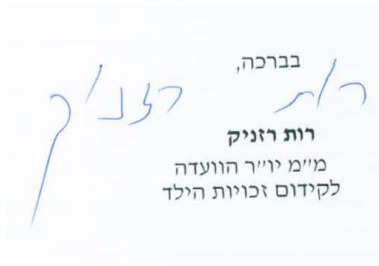 בברכה,
רות רזניק
רות רזניק
מ״מ יו״ר הוועדה
לקידום זכויות הילד